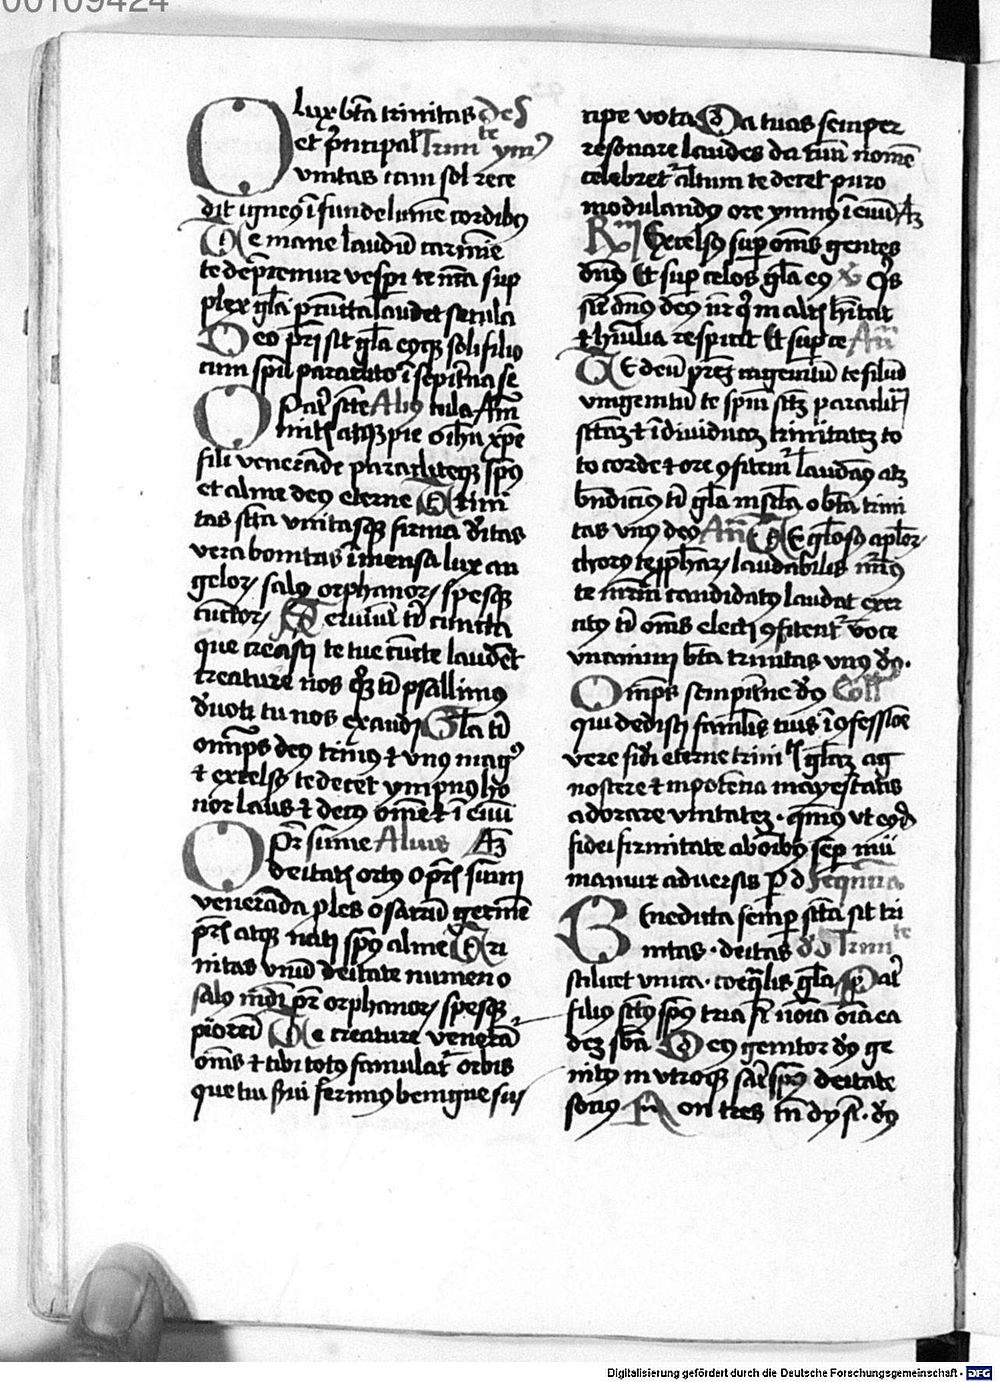 00109424
O lux bta trinitas de S
et pncipal Trinite ymꝰ
vnitas iam sol rece
dit igneꝰ ifunde lume cordibꝰ
Te mane laudu carmie
te depremur vespi te nra sup
plex gla p cucta laudet secula
Deo pri sit gla eiꝰqꝫ soli filio
cum spu paraclito i sepitna se
O Pat scte Aliꝰ cula Am
mitis atqꝫ pie o ihu xpe
fili venerade paracliteqꝫ spꝰ
et alme deꝰ eterne Trini
tas scta vnitasqꝫ firma ditas
vera bonitas imensa lux an
gelor salꝰ orphanor spesqꝫ
cuctor Seruiut ti cuncta
que creasti te tue cucte laudet
creature nos qꝫ ti psallimꝰ
deuoti tu nos exaudi Gla ti
omps deꝰ trinꝰ et vnꝰ magꝰ
et excelsꝰ te decet ympnꝰ ho
nor laus et decꝰ ome et i euu
O Pr sume Alius Aꝫ
deitatis ortꝰ o pris sumi
veneranda ples o sacru germe
pris atqꝫ nati spꝰ alme Tri
nitas vniu deitate numero
salꝰ mdi pr orphanor spesqꝫ
pioru Te creature venerat
oms et tibi totꝰ famulat orbis
que tui sui ferimꝰ benigne sus
cipe vota Da tuas semper
resonare laudes da tuu nome
celebret altum te decet puro
modulandꝰ ore ymnꝰ i euu Aꝫ
Rij Excelsꝰ sup oms gentes
dns Et sup celos gla eiꝰ v Qs
sic dns deꝰ nr q in altis hitat
et humilia respicit Et sup ce An
Te deu prez ingenitu te filiu
vnigenitu te spm sctz paraclit
sctaz et idiuiduaz trinitatez to
to corde et ore ꝯfitem laudaꝰ atꝫ
bndiciꝰ ti gla in scla o bta trini
tas vnꝰ deꝰ An Te gliosꝰ aplor
chorꝰ te pphar laudabilis nuꝰ
te mrm candidatꝰ laudat exer
citꝰ ti oms electi ꝯfitent voce
vnanimi bta trinitas vnꝰ ds.
Omps sempitne ds Coll
qui dedisti famlis tuis i ꝯfessioe
vere fidi eterne trinitis glaz ag
noscere et in potecia mayestatis
adorare vnitatez. qmꝰ vt eiꝰd
fidei firmitate ab oibꝰ sep mu
niamur aduersis P d Sequncia
Benedicta semp scta sit tri
nitas. deitas de S Trinite
scilicet vnita. coeqlis gla Pat
filiꝰ sctꝰ spꝰ tria st noia oia ea
dez sba Deꝰ genitor ds ge
nitꝰ in vtroqꝫ sac spꝰ deitate
sociꝰ Non tres tn dij st. ds
Digitalisierung gefördert durch die Deutsche Forschungsgemeinschaft - DFG